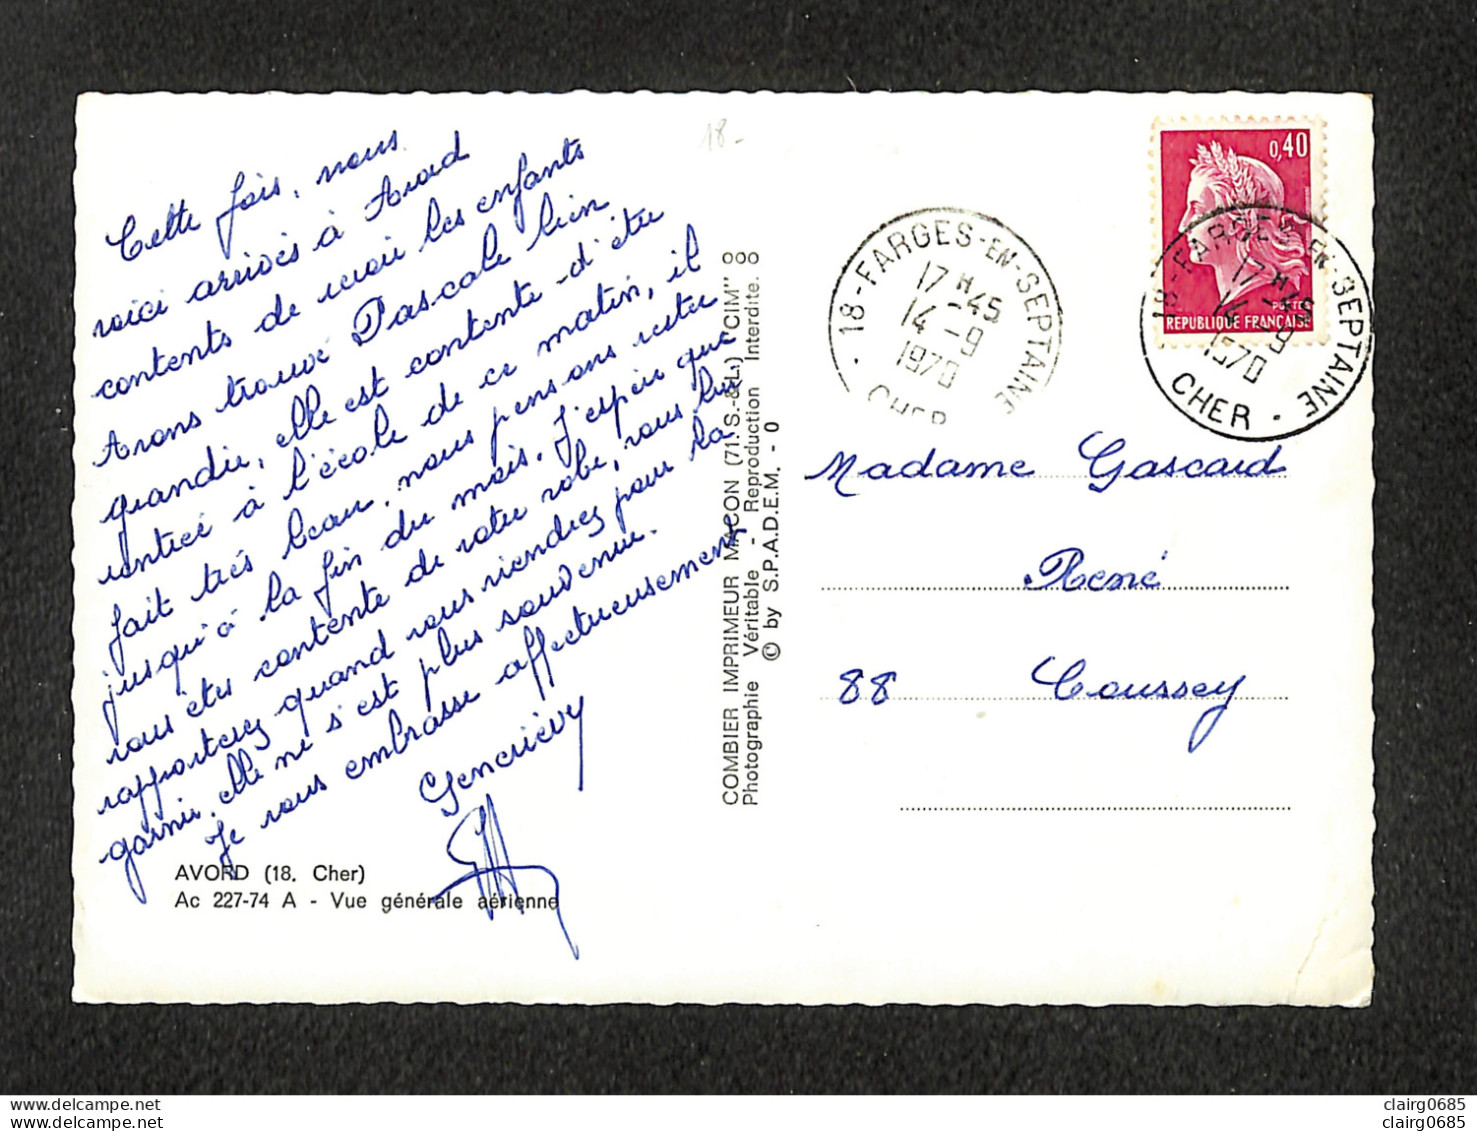 Cette fois, nous
voici arrivés à Avord
contents de revoir les enfants
Avons trouvé Pascale bien
grandie, elle est contente d'être
rentrée à l'école de ce matin, il
fait très beau, nous pensons rester
jusqu'à la fin du mois. J'espère que
vous êtes contente de votre robe, vous la
rapporterez quand vous viendrez pour la
garnir, elle ne s'est plus souvenue.
Je vous embrasse affectueusement
Geneviève
AVORD (18. Cher)
Ac 227-74 A - Vue générale aérienne
18-
COMBIER IMPRIMEUR MACON (71. S.-&-L.) "CIM"
Photographie Véritable - Reproduction Interdite.
© by S.P.A.D.E.M. - 0
18-FARGES-EN-SEPTAINE
17 H-45
14-9
1970
CHER
0,40
POSTES
REPUBLIQUE FRANÇAISE
18-FARGES-EN-SEPTAINE
17 H-45
14-9
1970
CHER
Madame Gascard
René
88 Coussey
www.delcampe.net
clairg0685
www.delcampe.net
clairg0685